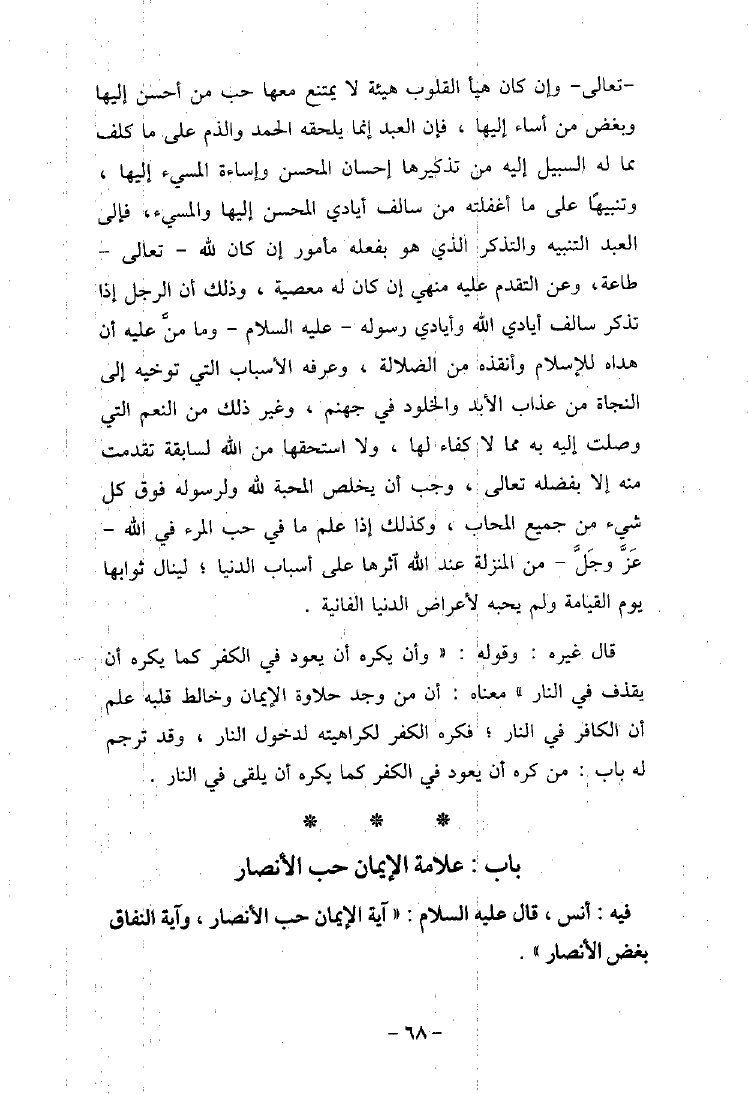 -تعالى- وإن كان هيأ القلوب هيئة لا يمتنع معها حب من أحسن إليها
وبغض من أساء إليها ، فإن العبد إنما يلحقه الحمد والذم على ما كلف
بما له السبيل إليه من تذكيرها إحسان المحسن وإساءة المسيء إليها ،
وتنبيهًا على ما أغفلته من سالف أيادي المحسن إليها والمسيء، فإلى
العبد التنبيه والتذكر الذي هو بفعله مأمور إن كان لله - تعالى -
طاعة، وعن التقدم عليه منهي إن كان له معصية ، وذلك أن الرجل إذا
تذكر سالف أيادي الله وأيادي رسوله - عليه السلام - وما منَّ عليه أن
هداه للإسلام وأنقذه من الضلالة ، وعرفه الأسباب التي توخيه إلى
النجاة من عذاب الأبد والخلود في جهنم ، وغير ذلك من النعم التي
وصلت إليه به مما لا كفاء لها ، ولا استحقها من الله لسابقة تقدمت
منه إلا بفضله تعالى ، وجب أن يخلص المحبة لله ولرسوله فوق كل
شيء من جميع المحاب ، وكذلك إذا علم ما في حب المرء في الله -
عَزَّ وجَلَّ - من المنزلة عند الله آثرها على أسباب الدنيا ؛ لينال ثوابها
يوم القيامة ولم يحبه لأعراض الدنيا الفانية .
قال غيره : وقوله : « وأن يكره أن يعود في الكفر كما يكره أن
يقذف في النار » معناه : أن من وجد حلاوة الإيمان وخالط قلبه علم
أن الكافر في النار ؛ فكره الكفر لكراهيته لدخول النار ، وقد ترجم
له باب : من كره أن يعود في الكفر كما يكره أن يلقى في النار .
* * *
باب : علامة الإيمان حب الأنصار
فيه : أنس ، قال عليه السلام : « آية الإيمان حب الأنصار ، وآية النفاق
بغض الأنصار » .
- ٦٨ -